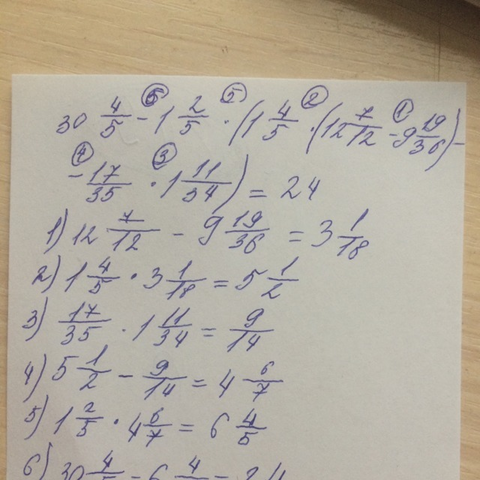 30 4/5 - 1 2/5 · (1 4/5 · (12 7/12 - 9 19/36) -
- 17/35 · 1 11/34) = 24
1) 12 7/12 - 9 19/36 = 3 1/18
2) 1 4/5 · 3 1/18 = 5 1/2
3) 17/35 · 1 11/34 = 9/14
4) 5 1/2 - 9/14 = 4 6/7
5) 1 2/5 · 4 6/7 = 6 4/5
6) 30 4/5 - 6 4/5 = 24